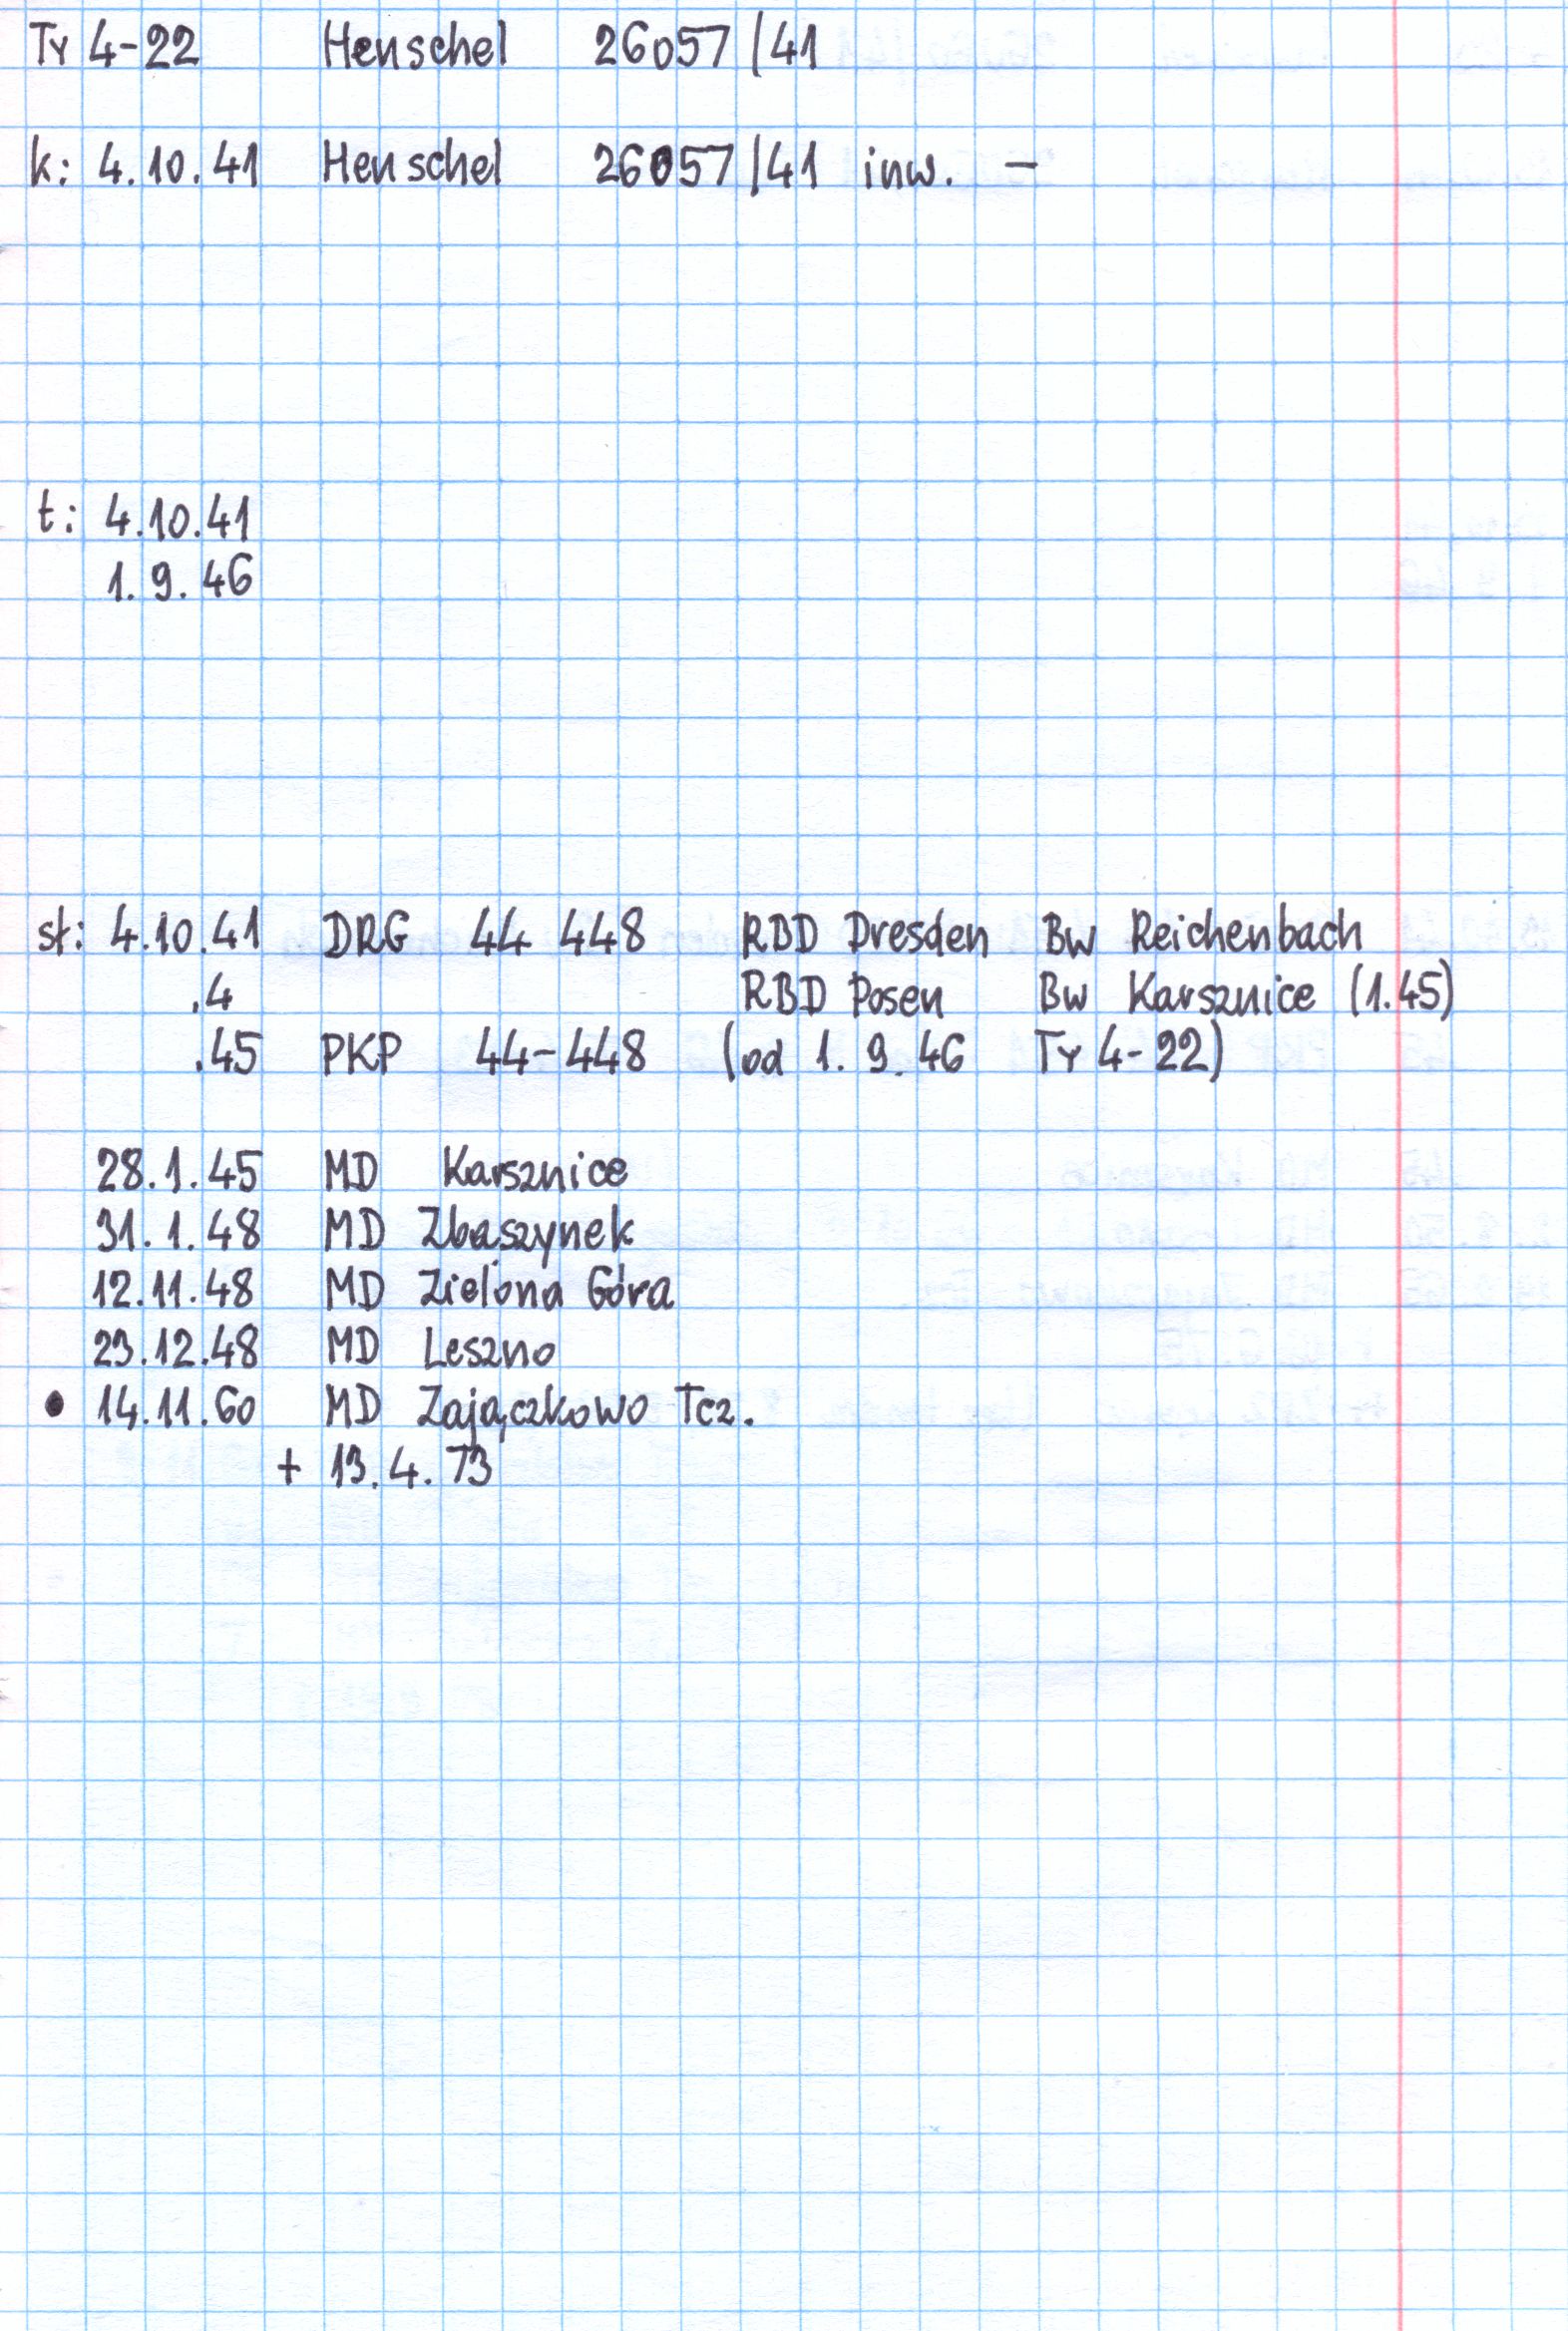 Ty 4-22 Henschel 26057/41
k: 4.10.41 Henschel 26057/41 inw. –
t: 4.10.41
1.9.46
st: 4.10.41 DRG 44 448 RBD Dresden Bw Reichenbach
.4 RBD Posen Bw Karsznice (1.45)
.45 PKP 44-448 (od 1.9.46 Ty 4-22)
28.1.45 MD Karsznice
31.1.48 MD Zbąszynek
12.11.48 MD Zielona Góra
23.12.48 MD Leszno
• 14.11.60 MD Zajączkowo Tcz.
+ 13.4.73